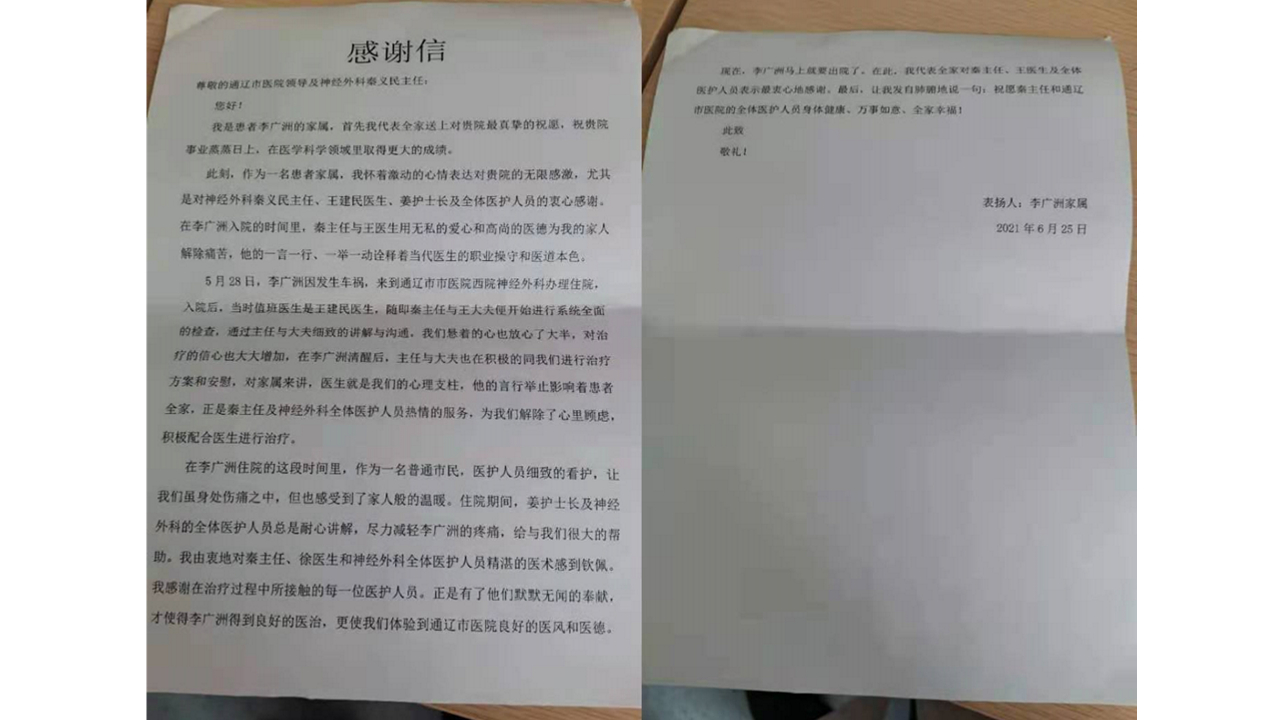 感谢信
尊敬的通辽市医院领导及神经外科秦义民主任：
您好！
我是患者李广洲的家属，首先我代表全家送上对贵院最真挚的祝愿，祝贵院
事业蒸蒸日上，在医学科学领域里取得更大的成绩。
此刻，作为一名患者家属，我怀着激动的心情表达对贵院的无限感激，尤其
是对神经外科秦义民主任、王建民医生、姜护士长及全体医护人员的衷心感谢。
在李广洲入院的时间里，秦主任与王医生用无私的爱心和高尚的医德为我的家人
解除痛苦，他的一言一行、一举一动诠释着当代医生的职业操守和医道本色。
5月28日，李广洲因发生车祸，来到通辽市市医院西院神经外科办理住院，
入院后，当时值班医生是王建民医生，随即秦主任与王大夫便开始进行系统全面
的检查，通过主任与大夫细致的讲解与沟通，我们悬着的心也放心了大半，对治
疗的信心也大大增加，在李广洲清醒后，主任与大夫也在积极的同我们进行治疗
方案和安慰，对家属来讲，医生就是我们的心理支柱，他的言行举止影响着患者
全家，正是秦主任及神经外科全体医护人员热情的服务，为我们解除了心里顾虑，
积极配合医生进行治疗。
在李广洲住院的这段时间里，作为一名普通市民，医护人员细致的看护，让
我们虽身处伤痛之中，但也感受到了家人般的温暖。住院期间，姜护士长及神经
外科的全体医护人员总是耐心讲解，尽力减轻李广洲的疼痛，给与我们很大的帮
助。我由衷地对秦主任、徐医生和神经外科全体医护人员精湛的医术感到钦佩。
我感谢在治疗过程中所接触的每一位医护人员。正是有了他们默默无闻的奉献，
才使得李广洲得到良好的医治，更使我们体验到通辽市医院良好的医风和医德。
现在，李广洲马上就要出院了。在此，我代表全家对秦主任、王医生及全体
医护人员表示最衷心地感谢。最后，让我发自肺腑地说一句：祝愿秦主任和通辽
市医院的全体医护人员身体健康、万事如意、全家幸福！
此致
敬礼！
表扬人：李广洲家属
2021年6月25日